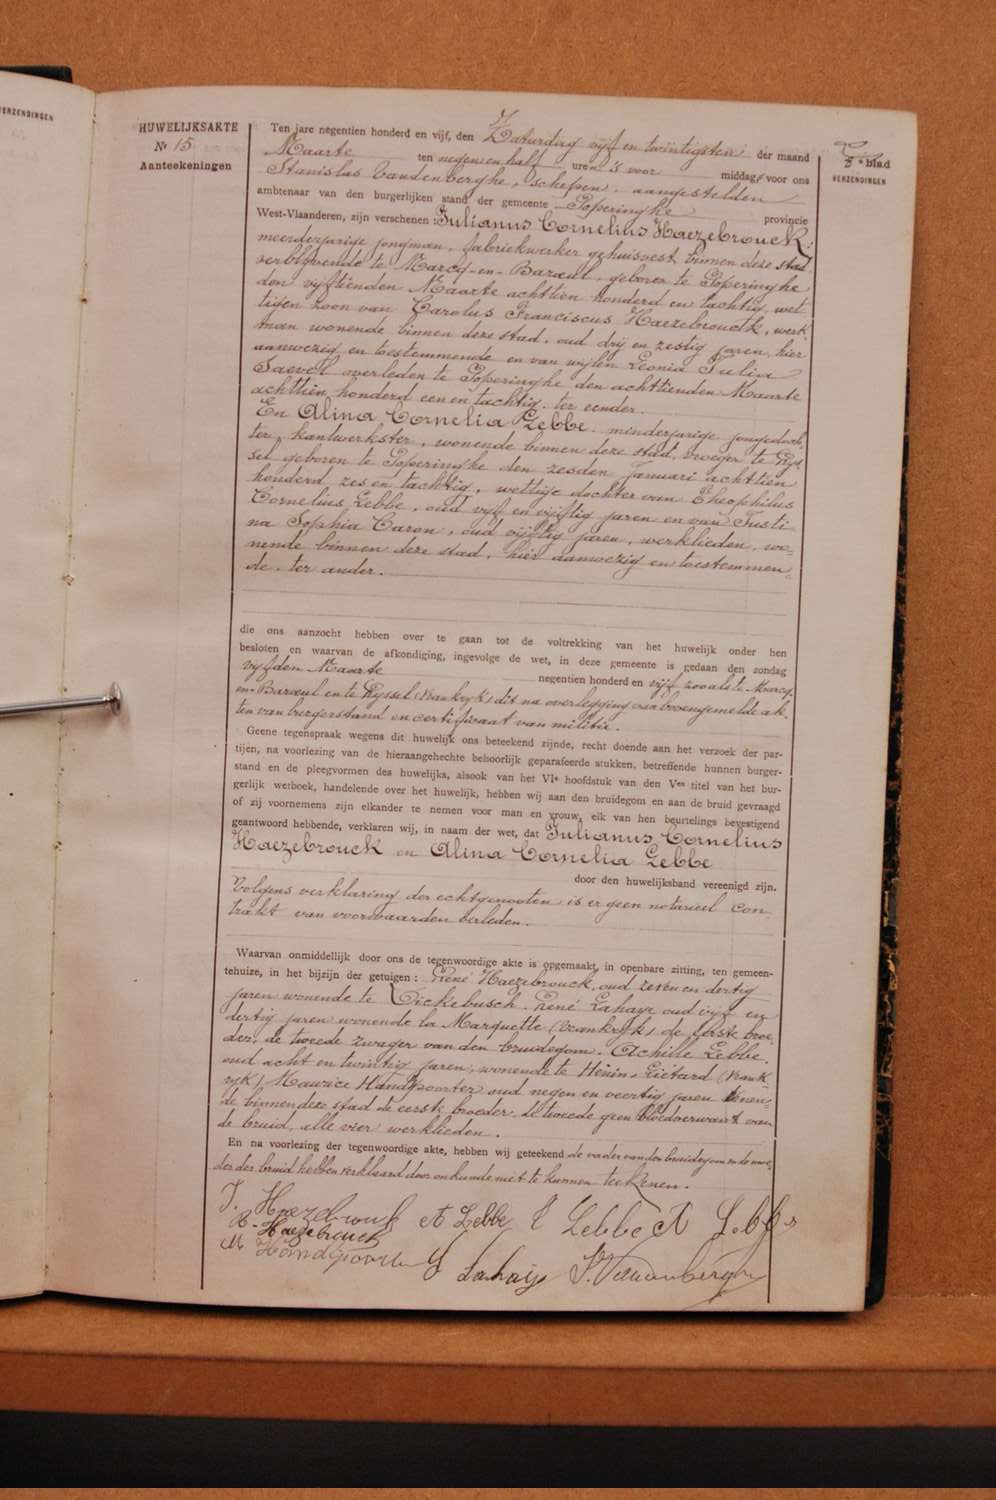 VERZENDINGEN
HUWELIJKSAKTE
Nr 15
Aanteekeningen
5e blad
VERZENDINGEN
Ten jare negentien honderd en vijf, den Zaturdag vijf en twintigsten der maand
Maarte ten negen en half ure 3 voor middag, voor ons
Stanislas Vandenberghe, schepen, aangestelden
ambtenaar van den burgerlijken stand der gemeente Poperinghe provincie
West-Vlaanderen, zijn verschenen : Julianus Cornelius Haezebrouck,
meerderjarige jongman, fabriekwerker gehuisvest binnen deze stad
verblijvende te Marcq-en-Barœul, geboren te Poperinghe
den vijftienden Maarte achttien honderd en tachtig, wet
tigen zoon van Carolus Franciscus Haezebrouck, werk
man wonende binnen deze stad, oud drij en zestig jaren, hier
aanwezig en toestemmende en van wijlen Leonia Julia
Saevel overleden te Poperinghe den achttienden Maarte
achttien honderd een en tachtig, ter eender.
En Alina Cornelia Lebbe, minderjarige jongedoch-
ter, kantwerkster, wonende binnen deze stad, vroeger te Rys-
sel geboren te Poperinghe den zesden Januari achttien
honderd zes en tachtig, wettige dochter van Theophilus
Cornelius Lebbe, oud vijf en vijftig jaren en van Justi-
na Sophia Caron, oud vijftig jaren, werklieden, wo-
nende binnen deze stad, hier aanwezig en toestemmen-
de, ter ander.
die ons aanzocht hebben over te gaan tot de voltrekking van het huwelijk onder hen
besloten en waarvan de afkondiging, ingevolge de wet, in deze gemeente is gedaan den zondag
vijfden Maarte negentien honderd en vijf zooals te Marcq-
en-Barœul en te Ryssel (Vrankryk) dit na overlegging van bovengemelde ak-
ten van burgerstand en certificaat van militie.
Geene tegenspraak wegens dit huwelijk ons beteekend zijnde, recht doende aan het verzoek der par-
tijen, na voorlezing van de hieraangehechte behoorlijk geparafeerde stukken, betreffende hunnen burger-
stand en de pleegvormen des huwelijks, alsook van het VIe hoofdstuk van den Ven titel van het bur-
gerlijk wetboek, handelende over het huwelijk, hebben wij aan den bruidegom en aan de bruid gevraagd
of zij voornemens zijn elkander te nemen voor man en vrouw, elk van hen beurtelings bevestigend
geantwoord hebbende, verklaren wij, in naam der wet, dat Julianus Cornelius
Haezebrouck en Alina Cornelia Lebbe
door den huwelijksband vereenigd zijn.
Volgens verklaring der echtgenooten is er geen notarieel con-
trakt van voorwaarden verleden.
Waarvan onmiddelijk door ons de tegenwoordige akte is opgemaakt, in openbare zitting, ten gemeen-
tehuize, in het bijzijn der getuigen : René Haezebrouck, oud zeven en dertig
jaren wonende te Dickebusch, René Lahaye oud vijf en
dertig jaren wonende la Marquette (Vrankryk) de eerste broe-
der, de tweede zwager van den bruidegom. Achille Lebbe,
oud acht en twintig jaren, wonende te Hénin-Liétard (Vrank
ryk) Maurice Handtpoorter oud negen en veertig jaren wonen-
de binnen deze stad de eerste broeder, de tweede geen bloedverwant van
de bruid, alle vier werklieden.
En na voorlezing der tegenwoordige akte, hebben wij geteekend de vader van den bruidegom en de moe-
der der bruid hebben verklaard door onkunde niet te kunnen teekenen.
J. Haezebrouck A Lebbe Lebbe A Lebbe
R. Haezebrouck
M Handtpoorter Lahaije S. Vandenberghe